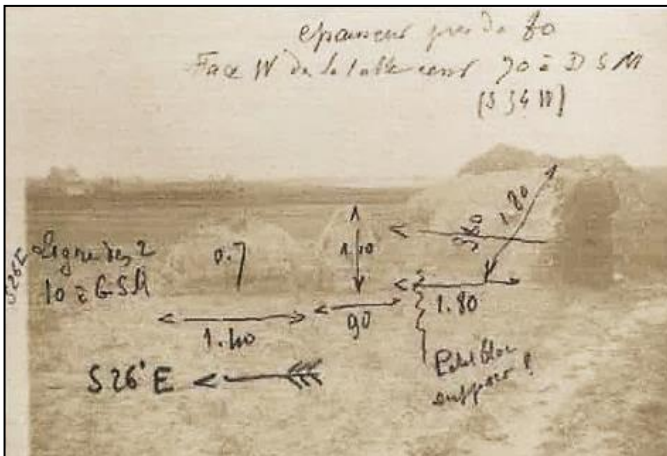 epaisseur pres de 80
Face W de la table cent 70 à D S M
(S 34 W)
S 26 E
Ligne des 2
10 à G S M
0.7
1.10
360
1.80
1.40
90
1.80
S 26° E
Petit bloc